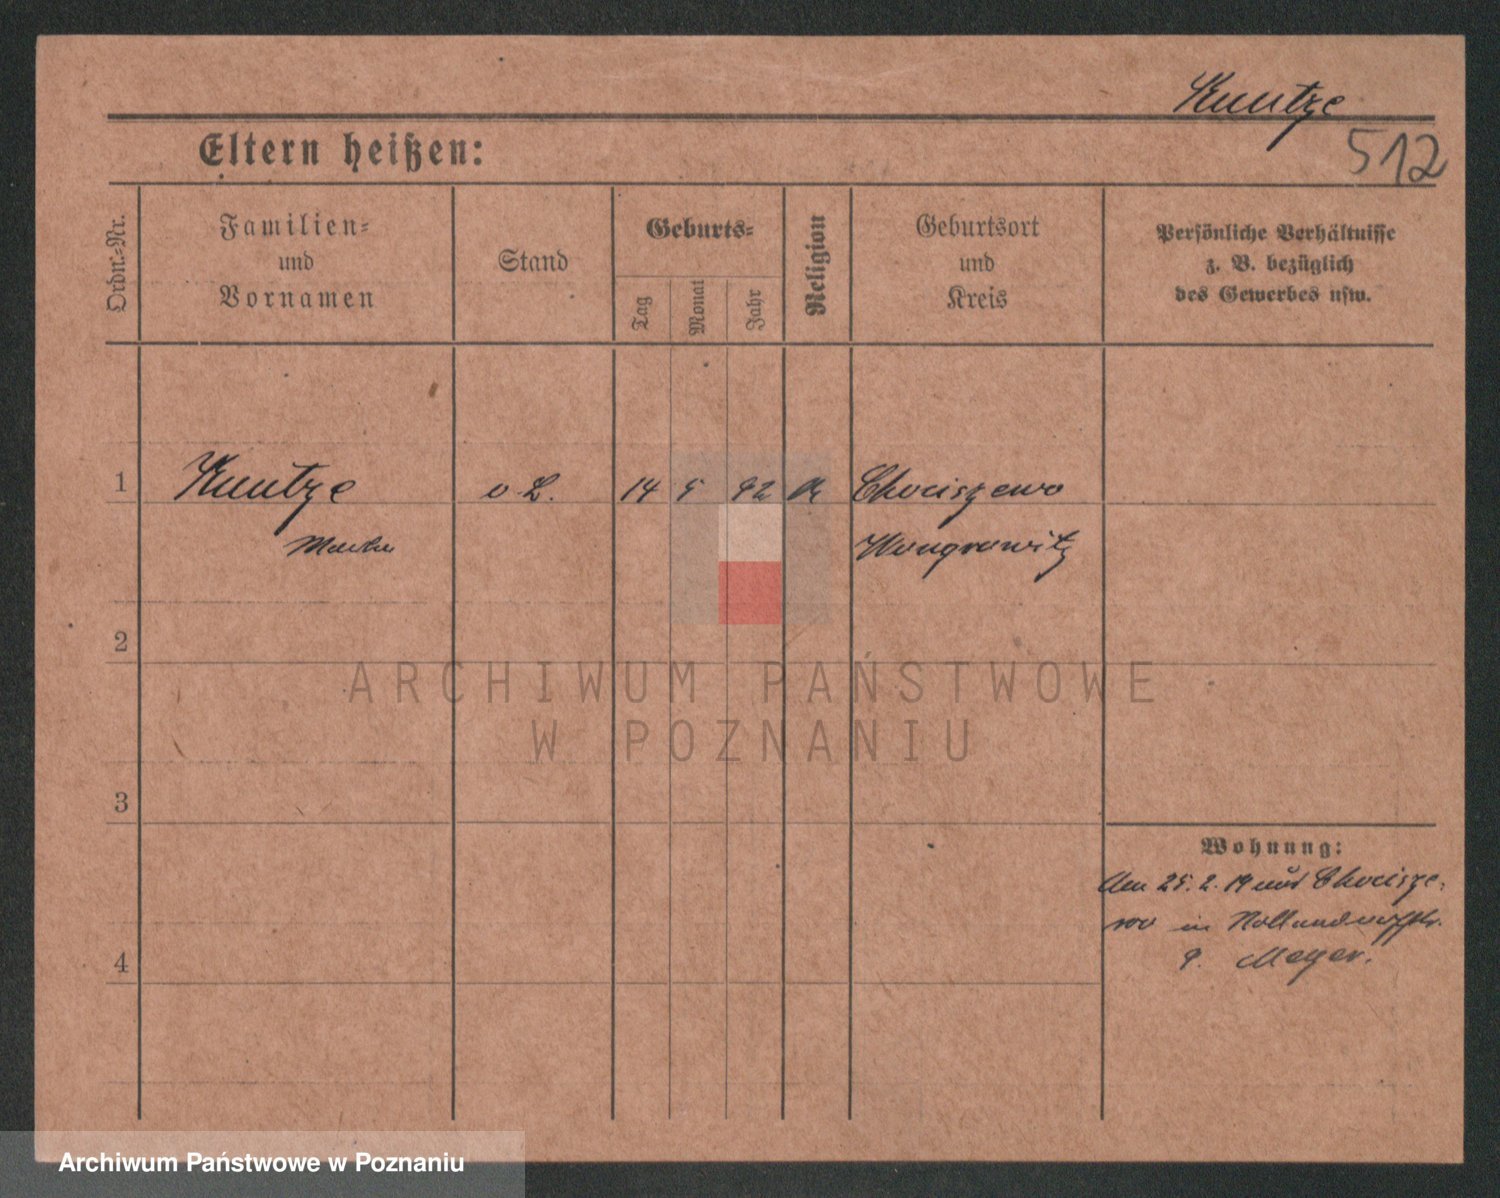 Kuntze
512
Eltern heißen:
Ordn.-Nr.
Familien-
und
Vornamen
Stand
Geburts-
Tag
Monat
Jahr
Religion
Geburtsort
und
Kreis
Persönliche Verhältnisse
z. B. bezüglich
des Gewerbes usw.
1 Kuntze 14 5 92 Chociszewo
Wongrowitz
2
3
4
Wohnung:
Am 25. 2. 19 aus Chocisze-
wo in
9. Meyer.
ARCHIWUM PAŃSTWOWE
W POZNANIU
Archiwum Państwowe w Poznaniu